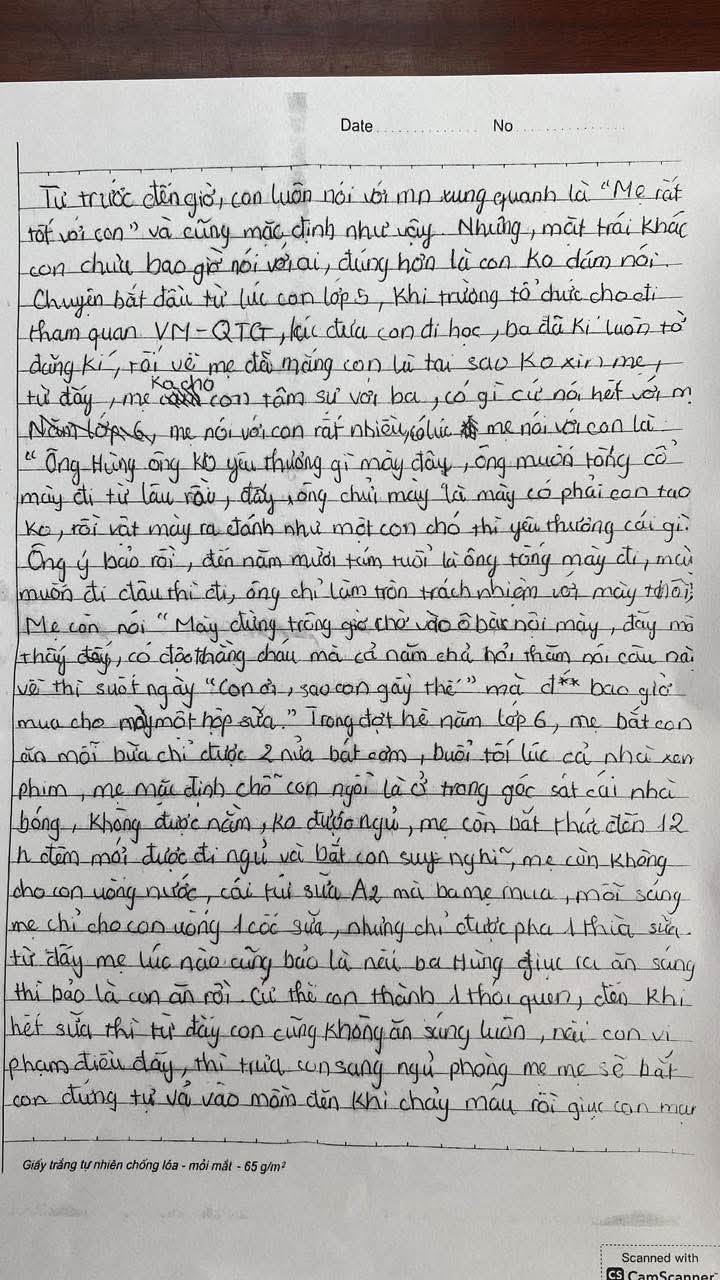 Date No
Từ trước đến giờ, con luôn nói với mn xung quanh là "Mẹ rất
tốt với con" và cũng mặc định như vậy. Nhưng, mặt trái khác
con chưa bao giờ nói với ai, đúng hơn là con ko dám nói.
Chuyện bắt đầu từ lúc con lớp 5, khi trường tổ chức cho đi
tham quan VM-QTG, lúc đưa con đi học, ba đã kí luôn tờ
đăng kí, rồi về mẹ đã mắng con là tai sao ko xin mẹ,
từ đấy, mẹ ko cho con tâm sự với ba, có gì cứ nói hết với m
Năm lớp 6, mẹ nói với con rất nhiều, có lúc mẹ nói với con là:
"Ông Hùng ông ko yêu thương gì mày đây, ông muốn tống cổ
mày đi từ lâu rồi, đấy, ông chửi mày là mày có phải con tao
ko, rồi vật mày ra đánh như một con chó thì yêu thương cái gì?
Ông ý bảo rồi, đến năm mười tám tuổi là ông tống mày đi, mày
muốn đi đâu thì đi, ông chỉ làm tròn trách nhiệm với mày thôi;
Mẹ con nói "Mày đừng trông giờ chờ vào ô bà nội mày, đấy mà
thấy đấy, có độc thằng cháu mà cả năm chả hỏi thăm nói câu nà
về thì suốt ngày "con ơi, sao con gầy thế" mà đ** bao giờ
mua cho mày một hộp sữa." Trong đợt hè năm lớp 6, mẹ bắt con
ăn mỗi bữa chỉ được 2 nửa bát cơm, buổi tối lúc cả nhà xem
phim, mẹ mặc định chỗ con ngồi là ở trong góc sát cái nhà
bóng, không được nằm, ko được ngủ, mẹ còn bắt thức đến 12
h đêm mới được đi ngủ và bắt con suy nghĩ, mẹ còn không
cho con uống nước, cái túi sữa A2 mà ba mẹ mua, mỗi sáng
mẹ chỉ cho con uống 1 cốc sữa, nhưng chỉ được pha 1 thìa sữa.
từ đấy mẹ lúc nào cũng bảo là nếu ba Hùng giục ra ăn sáng
thì bảo là con ăn rồi. Cứ thế con thành 1 thói quen, đến khi
hết sữa thì từ đấy con cũng không ăn sáng luôn, nếu con vi
phạm điều đấy, thì trưa con sang ngủ phòng mẹ mẹ sẽ bắt
con đứng tự vả vào mồm đến khi chảy máu rồi giục con mau
Giấy trắng tự nhiên chống lóa - mỏi mắt - 65 g/m²
Scanned with
CS CamScanner